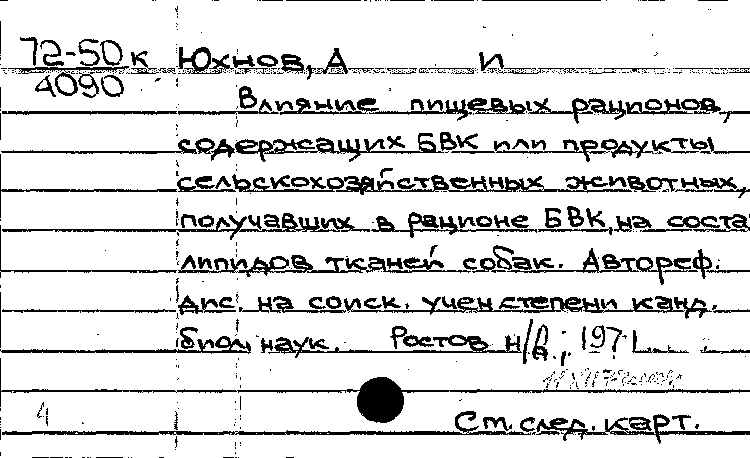 72-50к Юхнов, А И
4090
Влияние пищевых рационов,
содержащих БВК или продукты
сельскохозяйственных животных,
получавших в рационе БВК, на соста
липидов тканей собак. Автореф.
дис. на соиск. учен. степени канд.
биол. наук. Ростов н/Д., 1971.
4 Ст. след. карт.